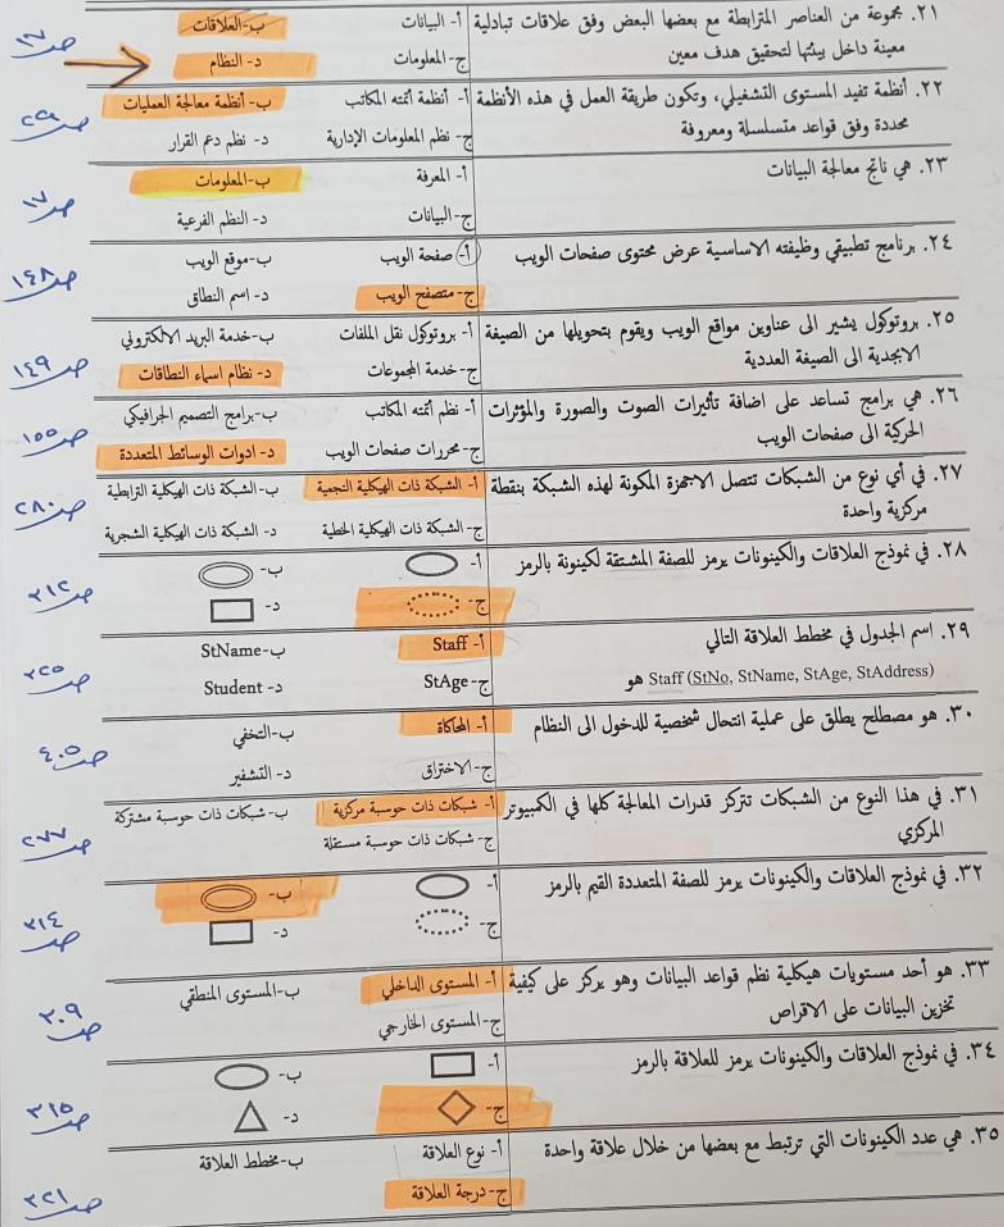 ٢١. مجموعة من العناصر المترابطة مع بعضها البعض وفق علاقات تبادلية أ- البيانات ب-العلاقات
معينة داخل بيئتها لتحقيق هدف معين ج-المعلومات د- النظام
ص١٦
٢٢. أنظمة تفيد المستوى التشغيلي، وتكون طريقة العمل في هذه الأنظمة أ- أنظمة أتمته المكاتب ب- أنظمة معالجة العمليات
محددة وفق قواعد متسلسلة ومعروفة ج- نظم المعلومات الإدارية د- نظم دعم القرار
ص٢٩
٢٣. هي ناتج معالجة البيانات أ- المعرفة ب-المعلومات
ج-البيانات د- النظم الفرعية
ص١٧
٢٤. برنامج تطبيقي وظيفته الاساسية عرض محتوى صفحات الويب أ- صفحة الويب ب-موقع الويب
ج-متصفح الويب د- اسم النطاق
ص١٤٨
٢٥. بروتوكول يشير الى عناوين مواقع الويب ويقوم بتحويلها من الصيغة أ- بروتوكول نقل الملفات ب-خدمة البريد الالكتروني
الابجدية الى الصيغة العددية ج-خدمة المجموعات د- نظام اسماء النطاقات
ص١٤٩
٢٦. هي برامج تساعد على اضافة تأثيرات الصوت والصورة والمؤثرات أ- نظم أتمته المكاتب ب-برامج التصميم الجرافيكي
الحركية الى صفحات الويب ج- محررات صفحات الويب د- ادوات الوسائط المتعددة
ص١٥٥
٢٧. في أي نوع من الشبكات تتصل الاجهزة المكونة لهذه الشبكة بنقطة أ- الشبكة ذات الهيكلية النجمية ب-الشبكة ذات الهيكلية الترابطية
مركزية واحدة ج- الشبكة ذات الهيكلية الخطية د- الشبكة ذات الهيكلية الشجرية
ص٢٨٠
٢٨. في نموذج العلاقات والكينونات يرمز للصفة المشتقة لكينونة بالرمز أ- ب-
ج- د-
ص٣١٢
٢٩. اسم الجدول في مخطط العلاقة التالي أ- Staff ب-StName
Staff (StNo, StName, StAge, StAddress) هو ج-StAge د- Student
ص٣٢٥
٣٠. هو مصطلح يطلق على عملية انتحال شخصية للدخول الى النظام أ- المحاكاة ب-التخفي
ج-الاختراق د- التشفير
ص٤٠٥
٣١. في هذا النوع من الشبكات تتركز قدرات المعالجة كلها في الكمبيوتر أ- شبكات ذات حوسبة مركزية ب- شبكات ذات حوسبة مشتركة
المركزي ج- شبكات ذات حوسبة مستقلة
ص٢٧٧
٣٢. في نموذج العلاقات والكينونات يرمز للصفة المتعددة القيم بالرمز أ- ب-
ج- د-
ص٣١٤
٣٣. هو أحد مستويات هيكلية نظم قواعد البيانات وهو يركز على كيفية أ- المستوى الداخلي ب-المستوى المنطقي
تخزين البيانات على الاقراص ج-المستوى الخارجي
ص٣٠٩
٣٤. في نموذج العلاقات والكينونات يرمز للعلاقة بالرمز أ- ب-
ج- د-
ص٣١٥
٣٥. هي عدد الكينونات التي ترتبط مع بعضها من خلال علاقة واحدة أ- نوع العلاقة ب-مخطط العلاقة
ج-درجة العلاقة
ص٣٢١